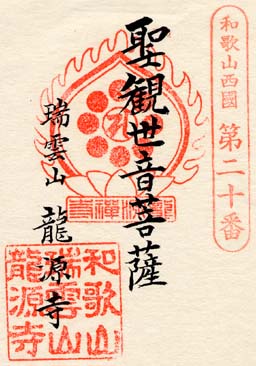 和歌山西國 第二十番
聖観世音菩薩
瑞雲山 龍源寺
和歌山
瑞雲山
龍源寺